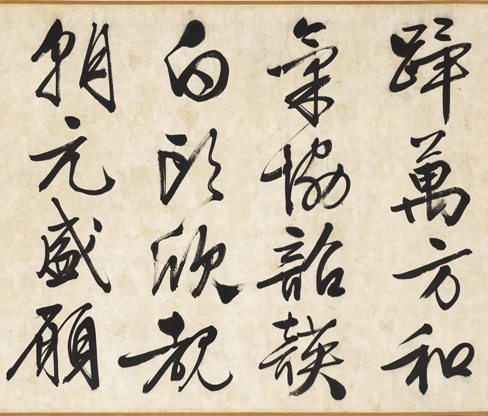 蹕萬方和
氣協韶韺
白頭欣覩
朝元盛願